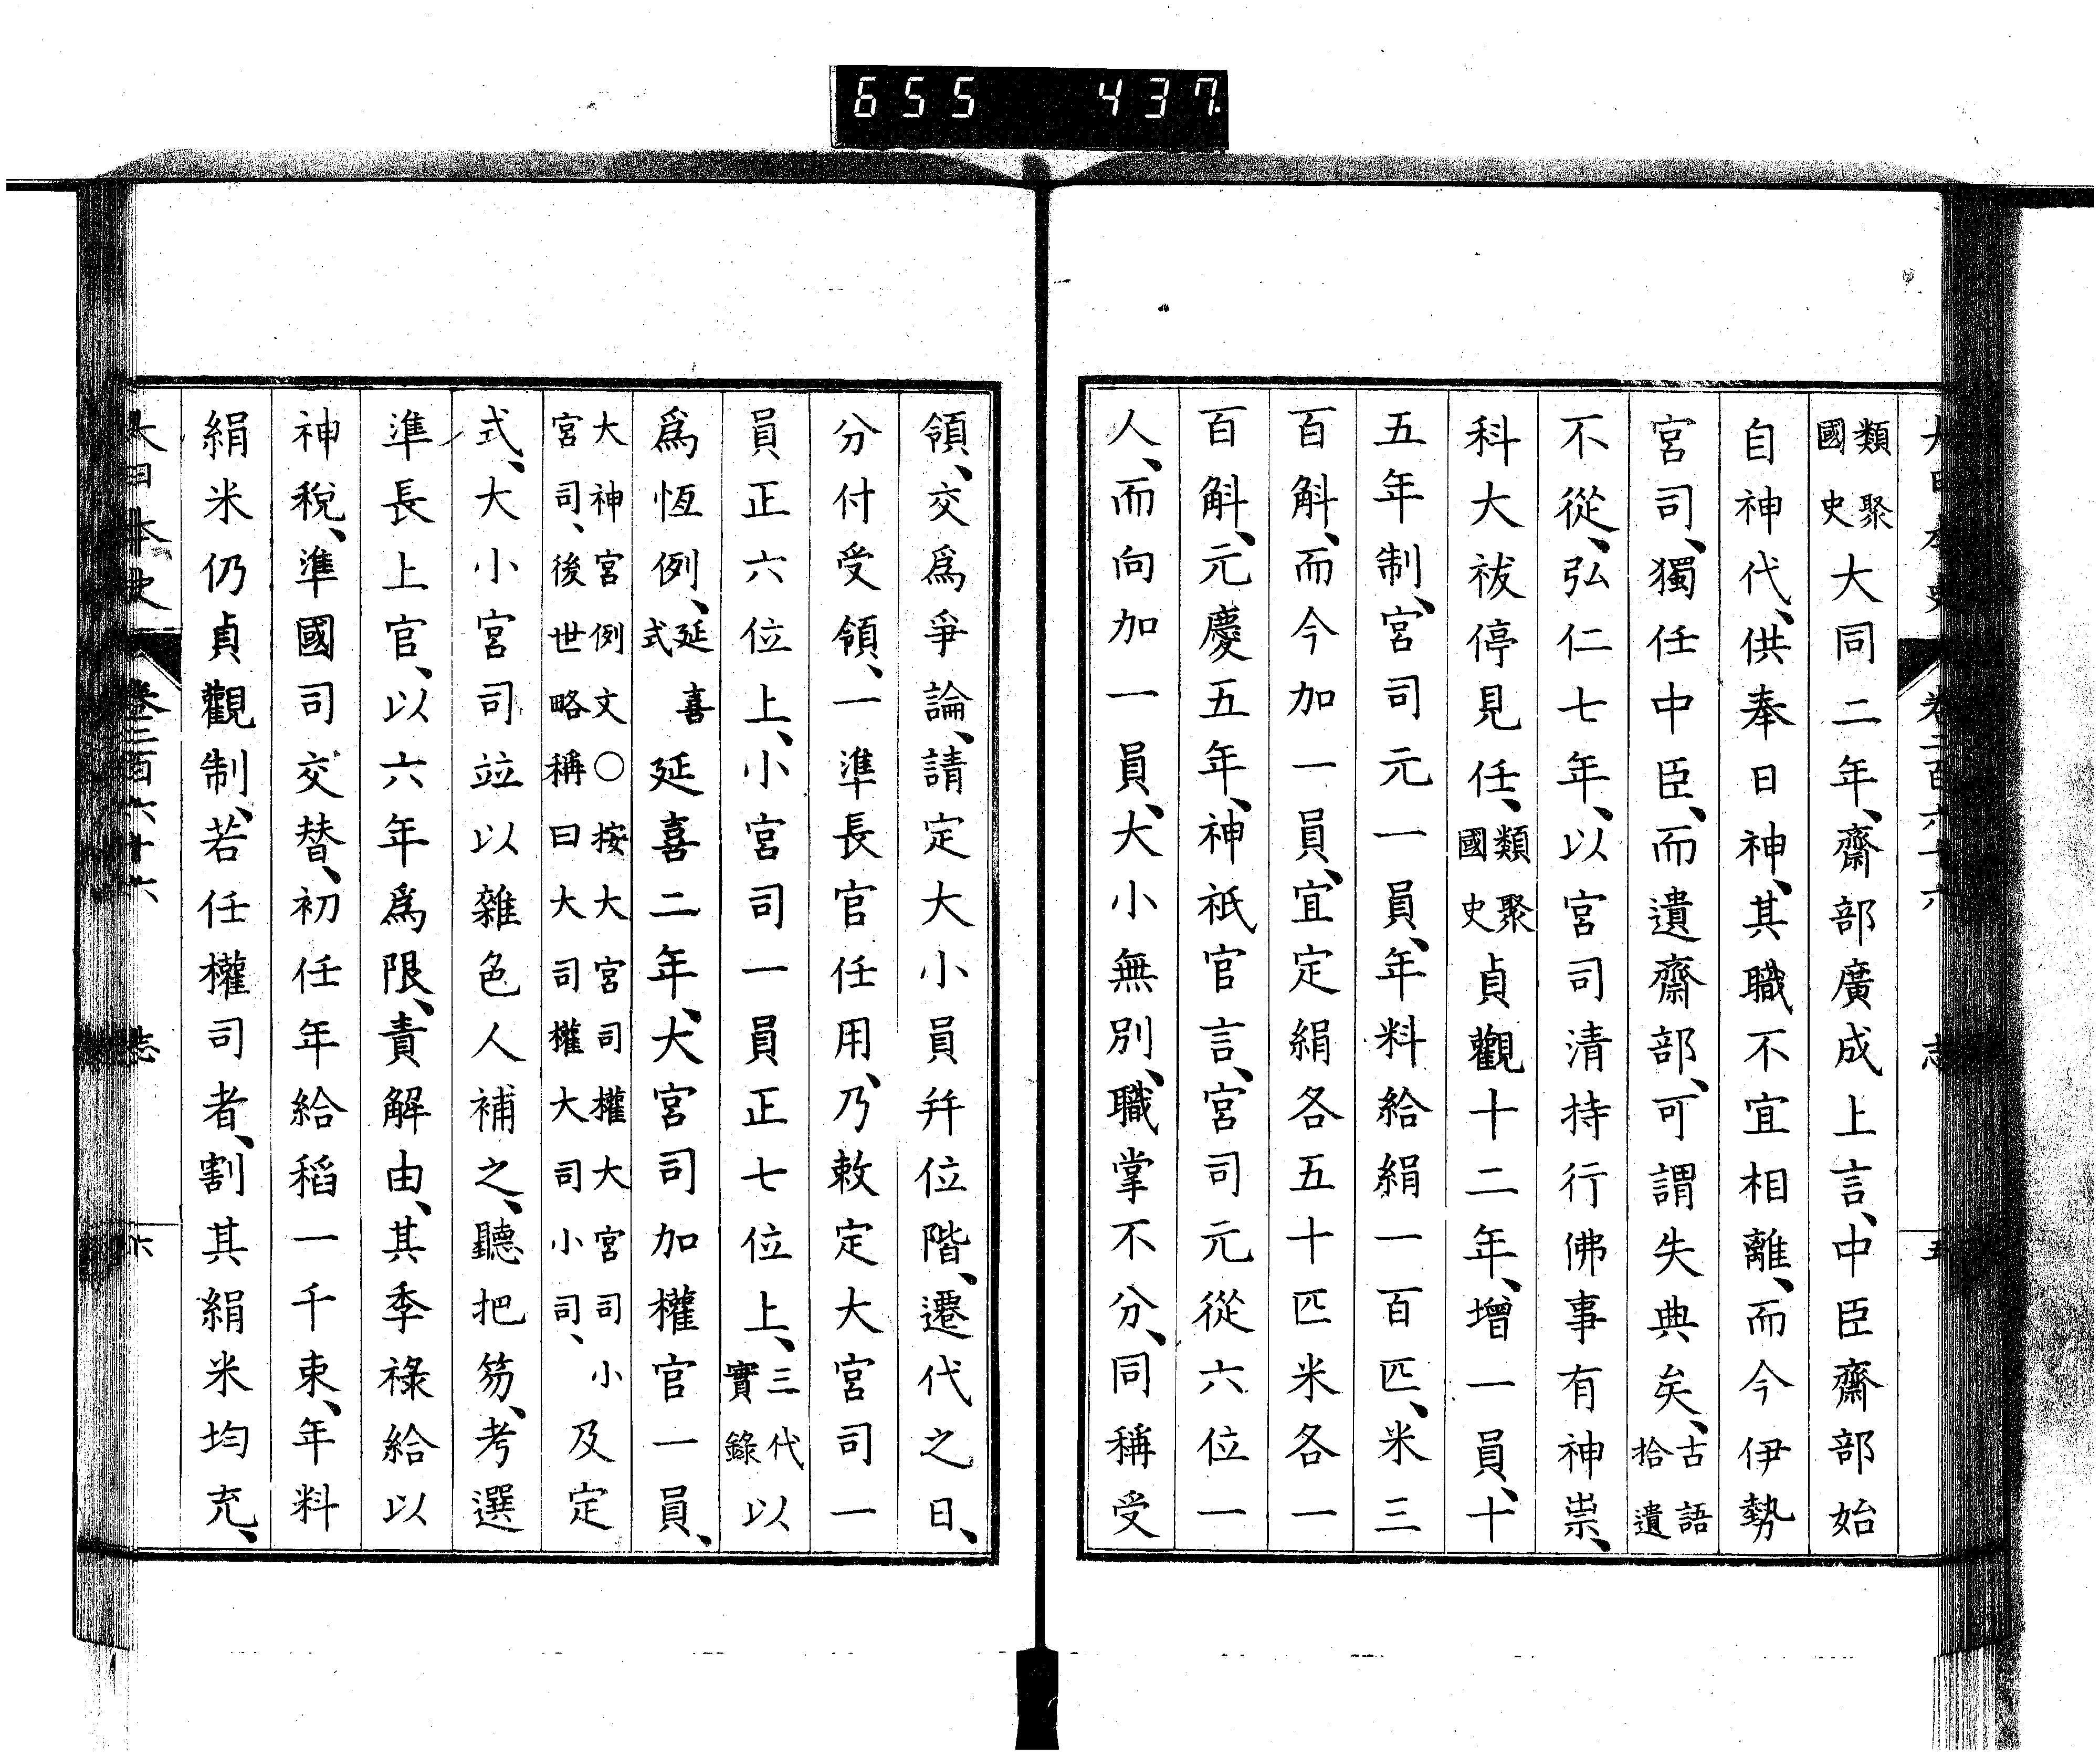 655 437
大日本史 卷二百六十六 志 五
類聚國史大同二年、齋部廣成上言、中臣齋部始
自神代、供奉日神、其職不宜相離、而今伊勢
宮司、獨任中臣、而遺齋部、可謂失典矣、古語拾遺
不從、弘仁七年、以宮司清持行佛事有神祟、
科大祓停見任、類聚國史貞觀十二年、增一員、十
五年制、宮司元一員、年料給絹一百匹、米三
百斛、而今加一員、宜定絹各五十匹米各一
百斛、元慶五年、神祇官言、宮司元從六位一
人、而向加一員、大小無別、職掌不分、同稱受
領、交爲爭論、請定大小員幷位階、遷代之日、
分付受領、一準長官任用、乃敕定大宮司一
員正六位上、小宮司一員正七位上、三代實錄以
爲恆例、延喜式延喜二年、大宮司加權官一員、
大神宮例文○按大宮司權大宮司小宮司、後世略稱曰大司權大司小司、及定
式、大小宮司竝以雜色人補之、聽把笏、考選
準長上官、以六年爲限、責解由、其季祿給以
神稅、準國司交替、初任年給稻一千束、年料
絹米仍貞觀制、若任權司者、割其絹米均充、
大日本史 卷二百六十六 志 六